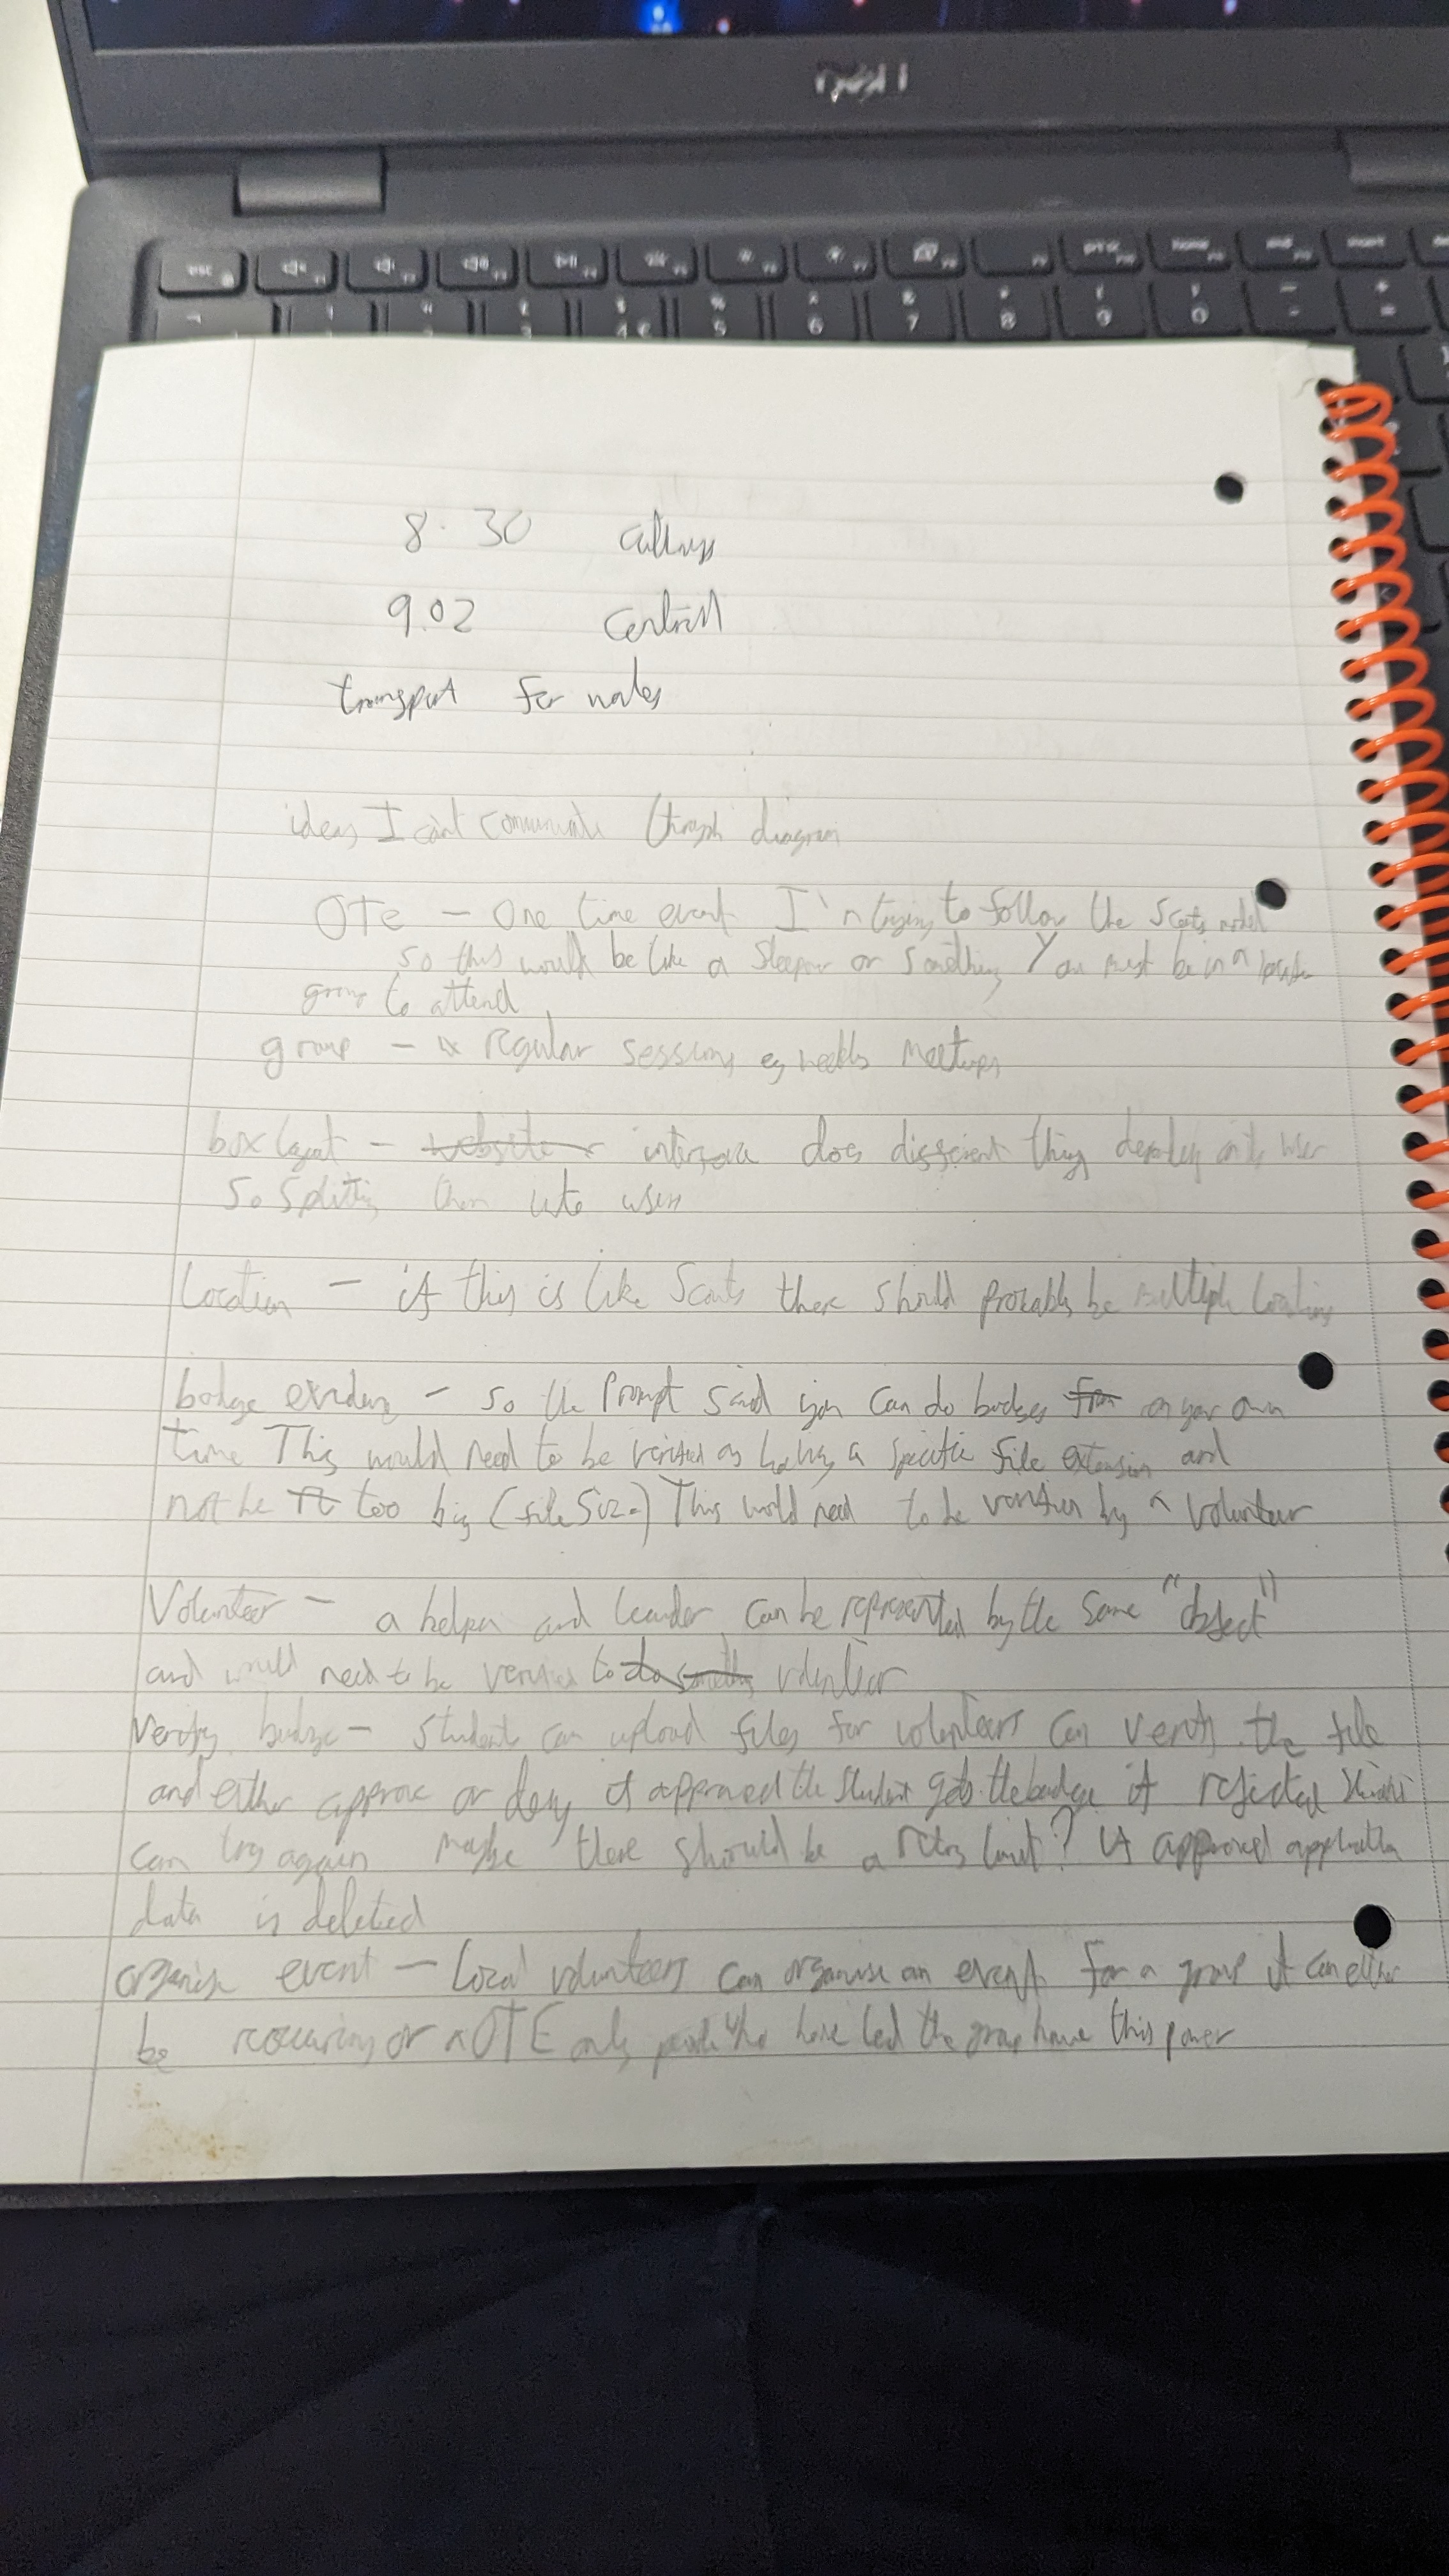 esc
home
end
insert
5 6 7 8 9 0
8.30
9.02 Central
transport for wales
ideas I cant communicate through diagram
OTE - One time event I'm trying to follow the Scouts model
so this would be like a sleepover or something You must be in a
group to attend
group - regular sessions eg weekly meetups
box layout - website interface does different things depending on the user
so splitting them into users
Location - if this is like Scouts there should probably be multiple locations
badge evidence - so the prompt said you can do badges for on your own
time This would need to be verified as having a specific file extension and
not be too big (file size) This would need to be verified by a volunteer
Volunteer - a helper and leader can be represented by the same "object"
and would need to be verified to do something volunteer
Verify badge - student can upload files for volunteers can verify the file
and either approve or deny if approved the student gets the badge if rejected student
can try again maybe there should be a retry limit? if approved application
data is deleted
organise event - Local volunteers can organise an event for a group it can either
be recurring or a OTE only people who have led the group have this power